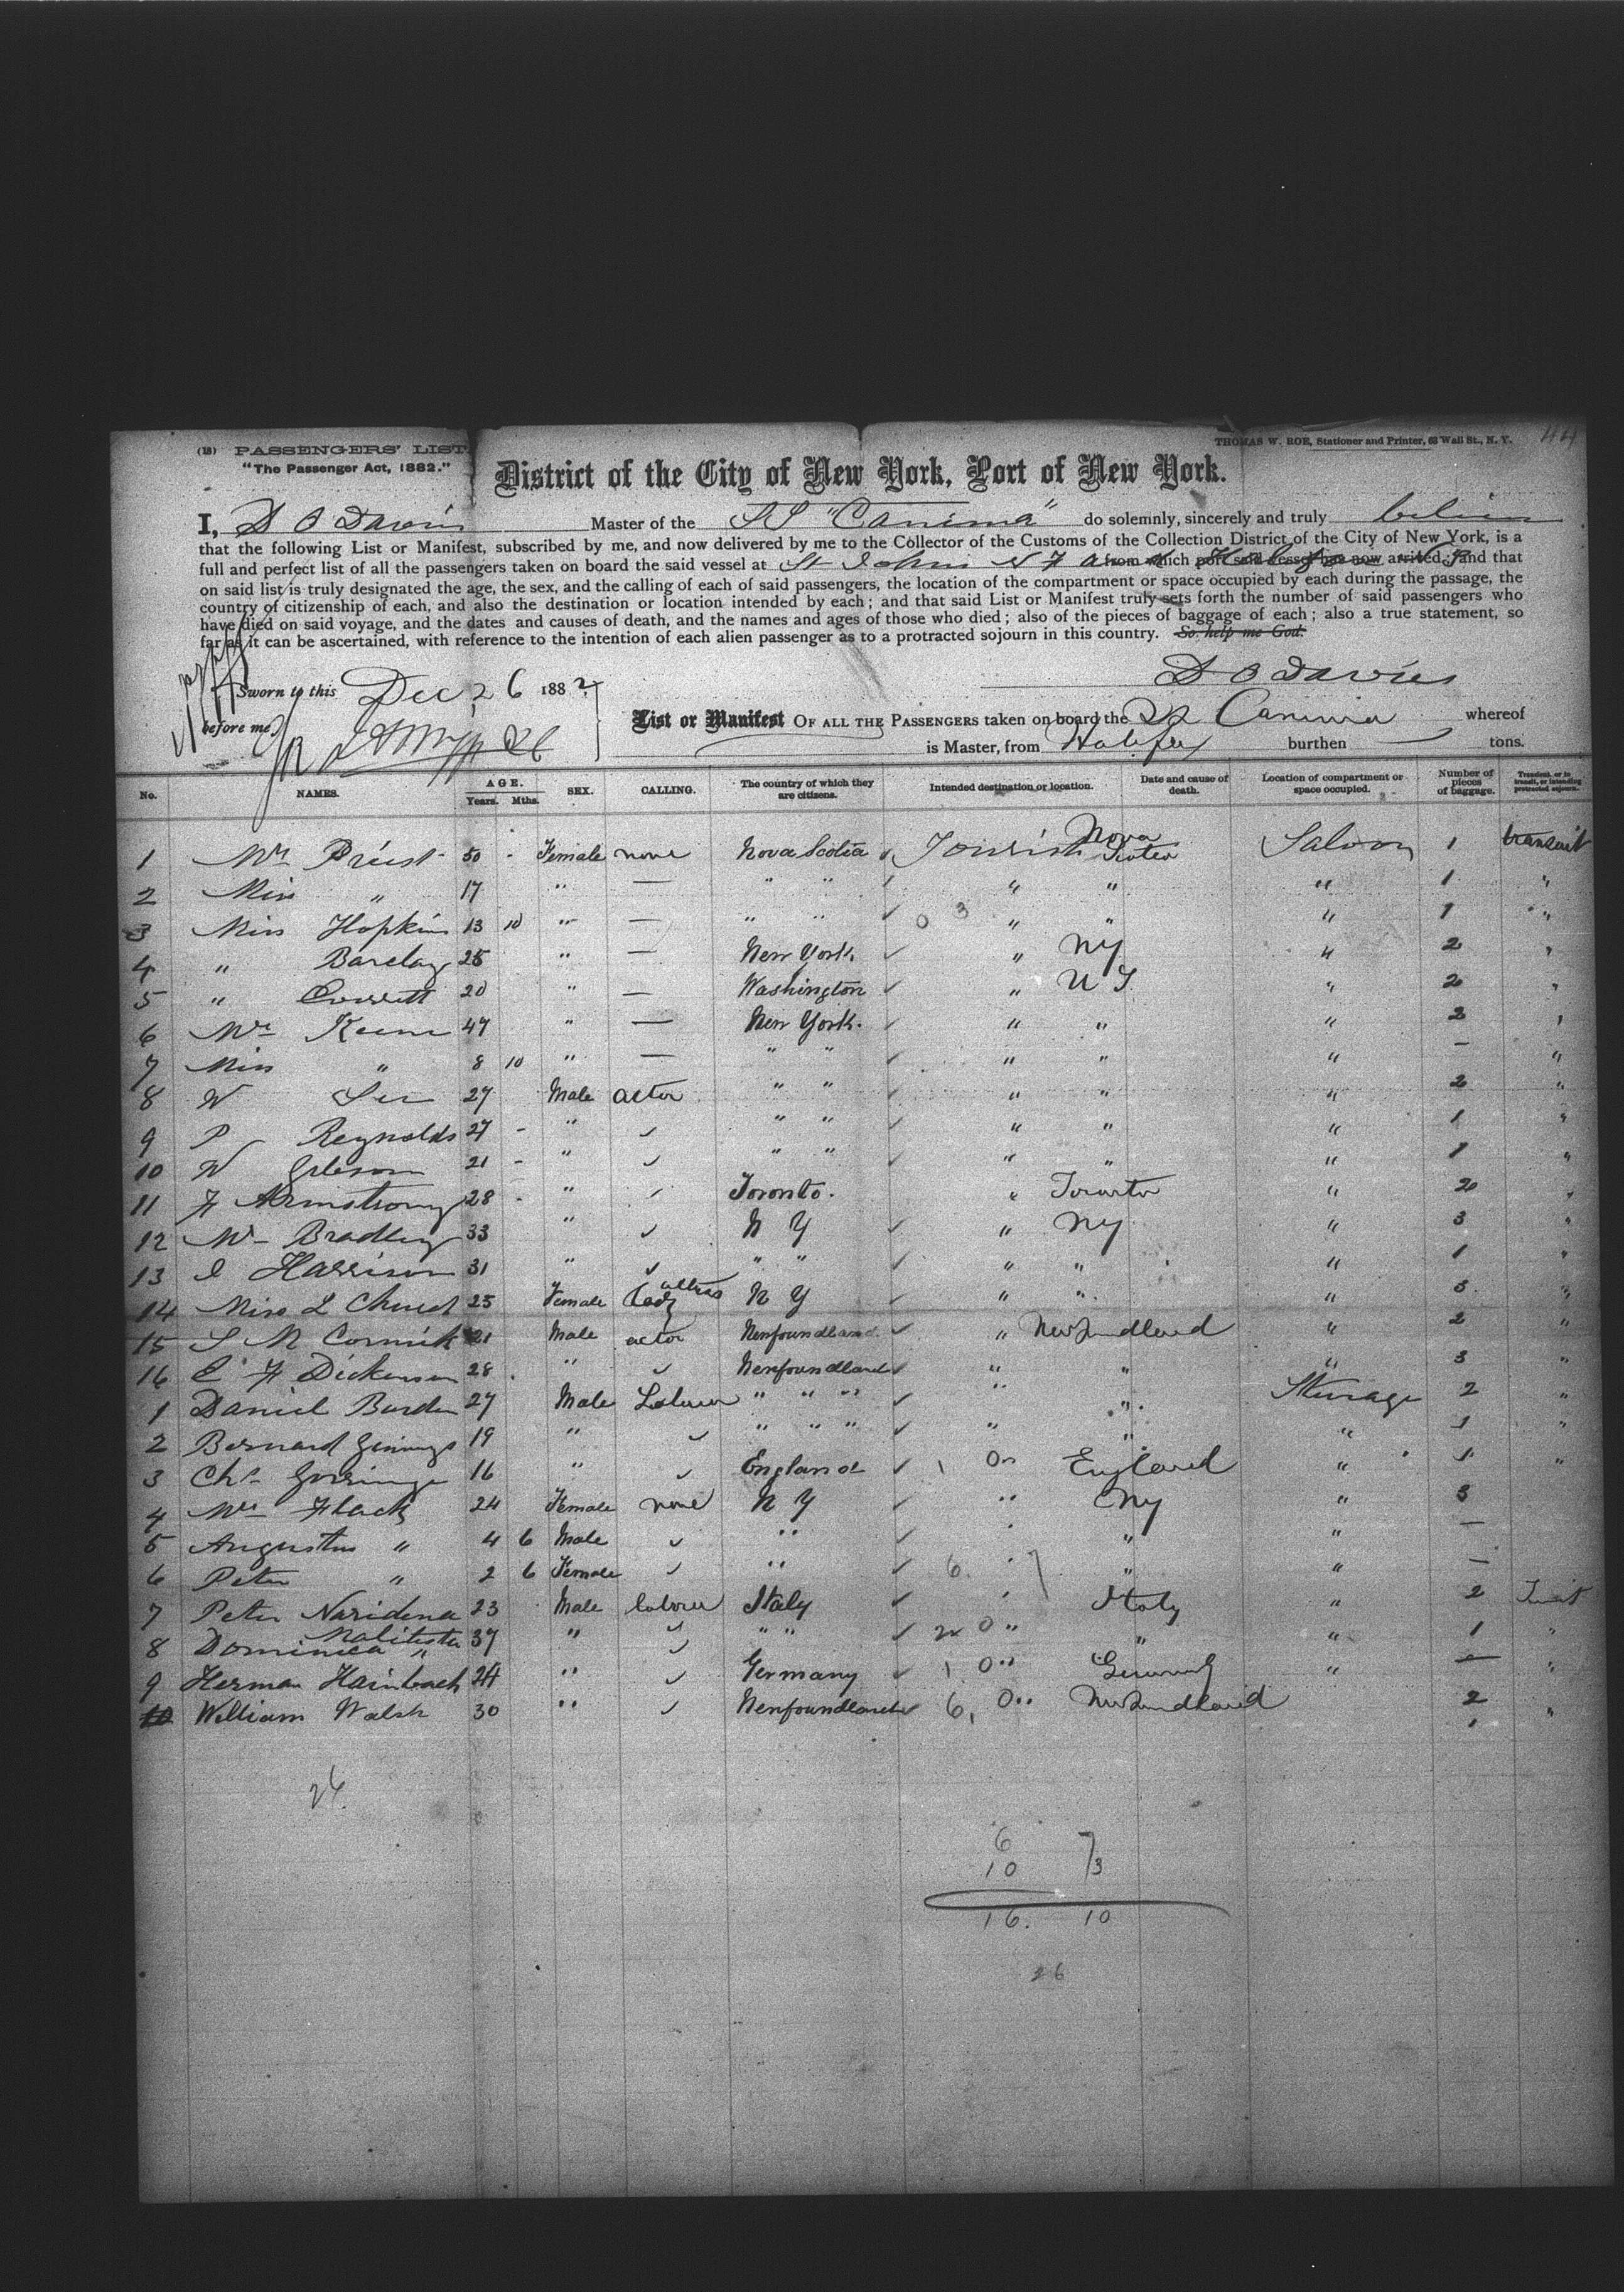 44
(18) PASSENGERS' LIST. THOMAS W. ROE, Stationer and Printer, 63 Wall St., N. Y.
"The Passenger Act, 1882."
District of the City of New York, Port of New York.
I, D O Davies Master of the SS "Canima" do solemnly, sincerely and truly
that the following List or Manifest, subscribed by me, and now delivered by me to the Collector of the Customs of the Collection District of the City of New York, is a
full and perfect list of all the passengers taken on board the said vessel at St Johns N F from which port said vessel has now arrived; and that
on said list is truly designated the age, the sex, and the calling of each of said passengers, the location of the compartment or space occupied by each during the passage, the
country of citizenship of each, and also the destination or location intended by each; and that said List or Manifest truly sets forth the number of said passengers who
have died on said voyage, and the dates and causes of death, and the names and ages of those who died; also of the pieces of baggage of each; also a true statement, so
far as it can be ascertained, with reference to the intention of each alien passenger as to a protracted sojourn in this country. So help me God.
D O Davies
Sworn to this Dec 26 1882
before me
List or Manifest OF ALL THE PASSENGERS taken on board the SS Canima whereof
is Master, from Halifax burthen tons.
No. NAMES. AGE. Years. Mths. SEX. CALLING. The country of which they are citizens. Intended destination or location. Date and cause of death. Location of compartment or space occupied. Number of pieces of baggage. Transient, or in transit, or intending protracted sojourn.
1 Mrs Priest 50 - Female none Nova Scotia Tourist Nova Scotia Saloon 1 transit
2 Miss " 17 " — " " " " " 1 "
3 Miss Hopkins 13 10 " — " " 0 3 " " " 1 "
4 " Barclay 25 " — New York " NY " 2 "
5 " Everett 20 " — Washington " U S " 2 "
6 Mrs Keene 47 " — New York. " " " 2 "
7 Miss " 8 10 " — " " " " " — "
8 W 27 Male actor " " " " " 2 "
9 P Reynolds 27 - " ✓ " " " " " 1 "
10 W Gibson 21 - " ✓ " " " " " 1 "
11 F Armstrong 28 - " ✓ Toronto. " Toronto " 2 "
12 Mr Bradley 33 " ✓ N Y " NY " 3 "
13 I Harrison 31 " ✓ " " " " " 1 "
14 Miss L Church 25 Female Lady actress N Y " " " 3 "
15 S Mc Cormick 21 Male actor Newfoundland. " Newfoundland " 2 "
16 E F Dickenson 28 " ✓ Newfoundland " " " 3 "
1 Daniel Burden 27 Male Laborer " " " " " Steerage 2 "
2 Bernard Jinnings 19 " ✓ " " " " " " 1 "
3 Chs 16 " ✓ England 1 0 " England " 1 "
4 Mrs Flack 24 Female none N Y " NY " 3
5 Augustus " 4 6 Male ✓ " " " " —
6 Peter " 2 6 Female ✓ " 6 " " " —
7 Peter Naridena 23 Male laborer Italy " Italy " 2 Transit
8 Dominica " 37 " ✓ " " 2 0 " " " 1 "
9 Herman Hainbach 24 " ✓ Germany 1 0 " Germany " — "
10 William Walsh 30 " ✓ Newfoundland 6 0 " Newfoundland 2 "
1
26
6 7
10 3
16. 10
26